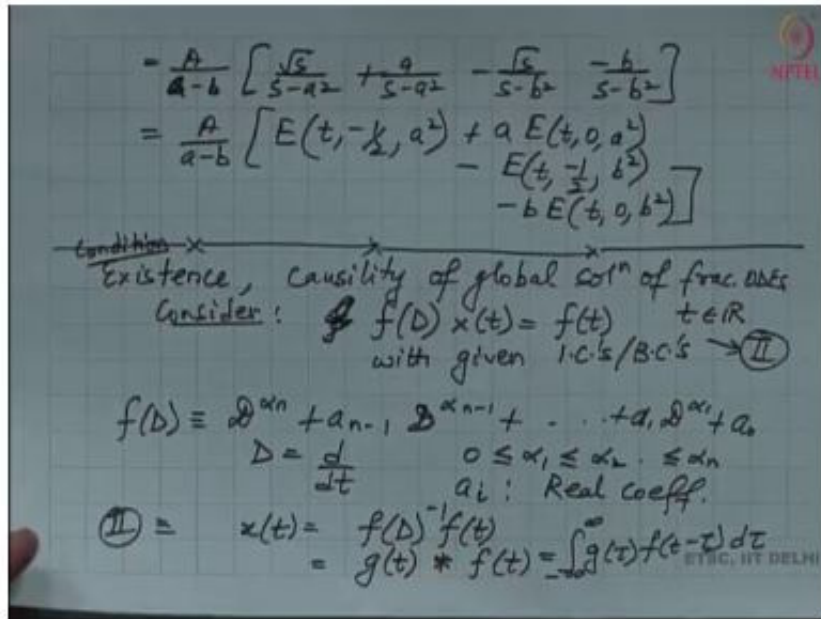 = A/(a-b) [ √s/(s-a²) + a/(s-a²) - √s/(s-b²) - b/(s-b²) ]
NPTEL
= A/(a-b) [ E(t, -1/2, a²) + a E(t, 0, a²)
- E(t, -1/2, b²)
- b E(t, 0, b²) ]
Condition
Existence, Causility of global solⁿ of frac. DDEs
Consider: f(D) x(t) = f(t) t ∈ ℝ
with given I.C.'s/B.C.'s → II
f(D) ≡ D^αn + a_{n-1} D^α_{n-1} + . . . + a₁ D^α₁ + a₀
D = d/dt 0 ≤ α₁ ≤ α₂ . ≤ αn
a_i : Real coeff.
II ≡ x(t) = f(D)⁻¹ f(t)
= g(t) * f(t) = ∫_{-∞}^{∞} g(τ) f(t-τ) dτ
ETSC, IIT DELHI